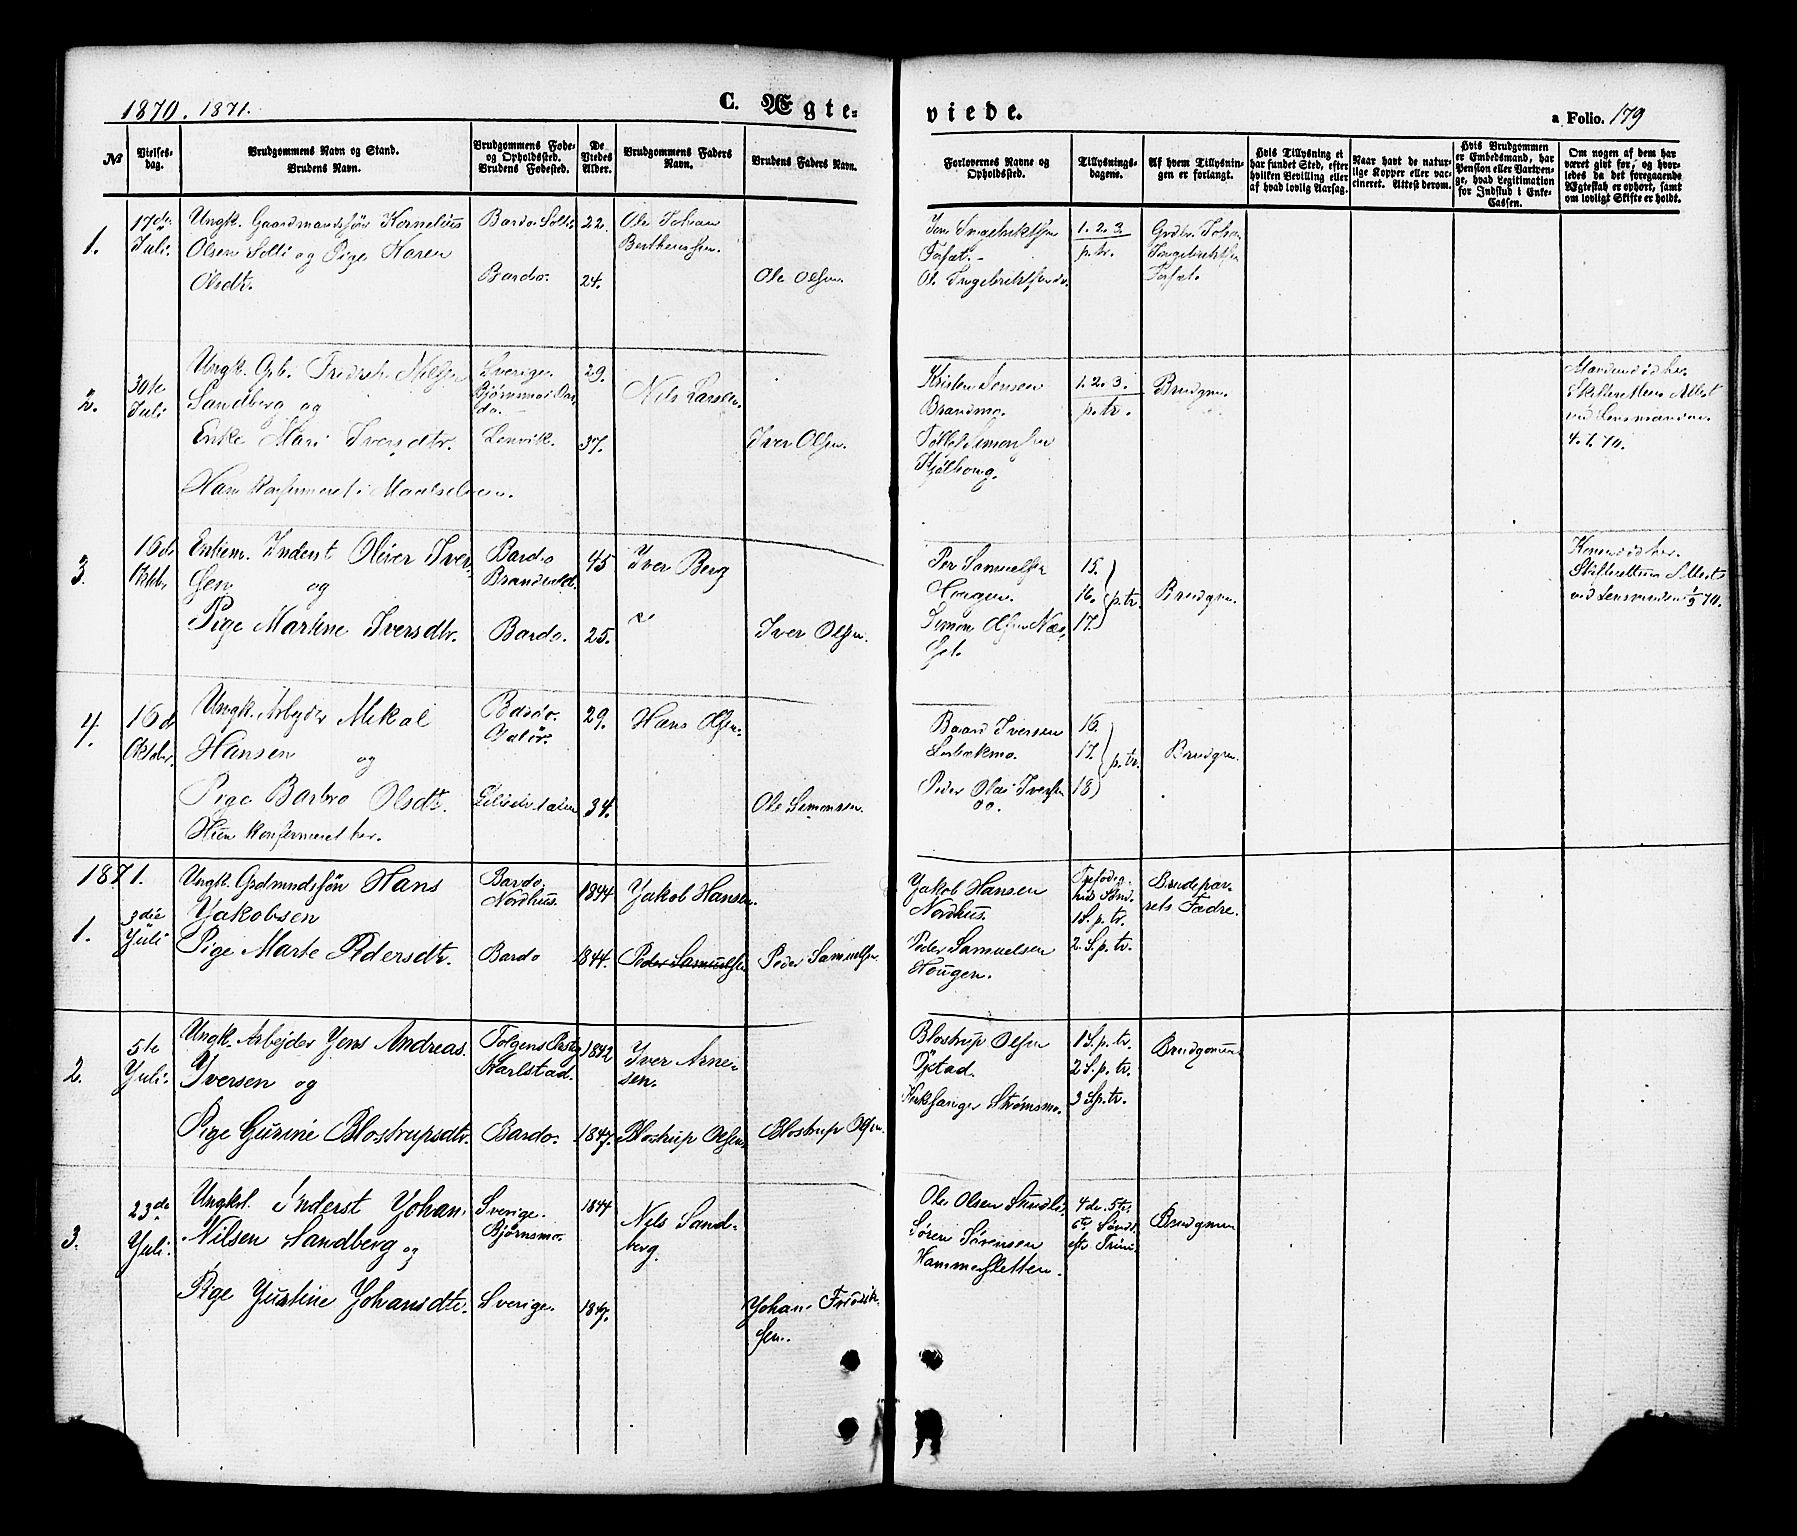 1870. 1871.
C. Ægte-
viede.
a Folio. 179
№
Vielses-
dag.
Brudgommens Navn og Stand.
Brudens Navn.
Brudgommens Føde-
og Opholdssted.
Brudens Fødested.
De
Viedes
Alder.
Brudgommens Faders
Navn.
Brudens Faders Navn.
Forlovernes Navne og
Opholdssted.
Tillysnings-
dagene.
Af hvem Tillysnin-
gen er forlangt.
Hvis Tillysning ei
har fundet Sted, efter
hvilken Bevilling eller
af hvad lovlig Aarsag.
Naar havt de natur-
lige Kopper eller vac-
cineret. Attest derom.
Hvis Brudgommen
er Embedsmand, har
Pension eller Vartpen-
ge, hvad Legitimation
for Indskud i Enke-
Cassen.
Om nogen af dem har
været gift før, og hvor-
ledes da det foregaaende
Ægteskab er ophørt, samt
om lovligt Skifte er holdt.
1.
17de
Juli.
Ungk. Gaardmandssøn Kornelius
Olsen Solli og Pige Karen
Olsdtr.
Bardo Solli
Bardo.
22.
24.
Ole Johan
Berthensen.
Ole Olsen.
Jens Ingebrigtsen
Fosset.
Ol. Ingebrektsen do.
1. 2. 3.
p. tr.
Grdbr. Johan
Ingebrektsen
Fosset.
2.
30te
Juli
Ungk. Arb. Fredrik Nilsen
Sandberg og
Enke Mari Iversdtr.
Han konfirmeret i Maalselven.
Sverige.
Bjørnsmo Bar-
do.
Lenvik.
29.
37.
Nils Larsen.
Iver Olsen.
Kristen Jensen
Brandmo.
Tollef Simonsen
Kjølhoug.
1. 2. 3.
p. tr.
Brudgm.
Manden død her.
Skifterettens Attest
ved Lensmanden
4. 7. 70.
3.
16de
Oktbr
Enkem. Inderst Oliver Iver-
sen og
Pige Martine Iversdtr.
Bardo
Brandvold.
Bardo.
45
25.
Iver Berg
Iver Olsen.
Per Samuelsen
Hougen.
Simon Olsen Næs-
set.
15.
16.
17.
p. tr.
Brudgm.
Konen død her.
Skifterettens Attest
ved Lensmanden 1/9 70.
4.
16de
Oktober.
Ungk. Arbeyder Mikal
Hansen og
Pige Barbro Olsdtr.
Hun konfirmeret her.
Bardo.
29.
34.
Hans Olsen.
Ole Simonsen.
Baard Iversen
Sørbækmo.
Peder Olai Iversen
do.
16.
17.
18
p. tr.
Brudgm.
1871.
1.
3die
Yuli
Ungk. Grdmndssøn Hans
Yakobsen
Pige Marte Pedersdtr.
Bardo.
Nordhus.
Bardo
1844
1844.
Yakob Hansen.
Peder Samuelsen
Peder Samuelsen.
Yakob Hansen
Nordhus.
Peder Samuelsen
Hougen.
Trefoldig-
heds Sønd.
1 S. p. tr.
2. S. p. tr.
Brudepar-
rets Fædre.
2.
5te
Yuli.
Ungk. Arbejder Yens Andreas
Yversen og
Pige Gurine Blostrupsdtr.
Tolgens Prstg
Karlstad.
Bardo.
1842
1847.
Yver Arne-
sen.
Blostrup Olsen
Blostrup Olsen.
Blostrup Olsen
Opstad.
Kirksanger Strømsmo.
1 S. p. tr.
2 S. p. tr.
3 S p. tr.
Brudgomen
3.
23de
Yuli.
Ungkl. Inderst Yohan
Nilsen Sandberg og
Pige Yustine Yohansdtr.
Sverige.
Bjørnsmo.
Sverige.
1844
1847.
Nils Sand-
berg.
Yohan Fredrik-
sen.
Ole Olsen Strudli.
Søren Sørensen
Hammersletten.
4de. 5te.
6te Sønd.
eft. Trini.
Brudgmen